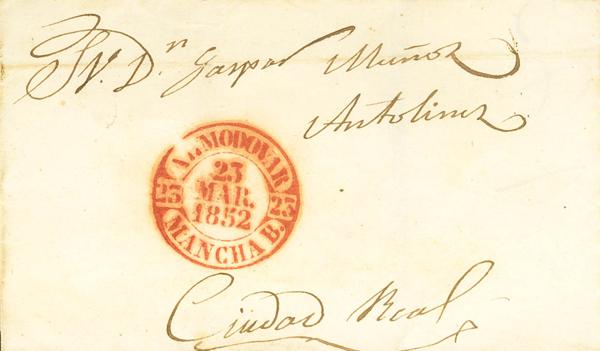 Sr. Dn Gaspar Muñoz
Antolinez
ALMODOVAR
23
MAR.
1852
23
23
MANCHA B.
Ciudad Real